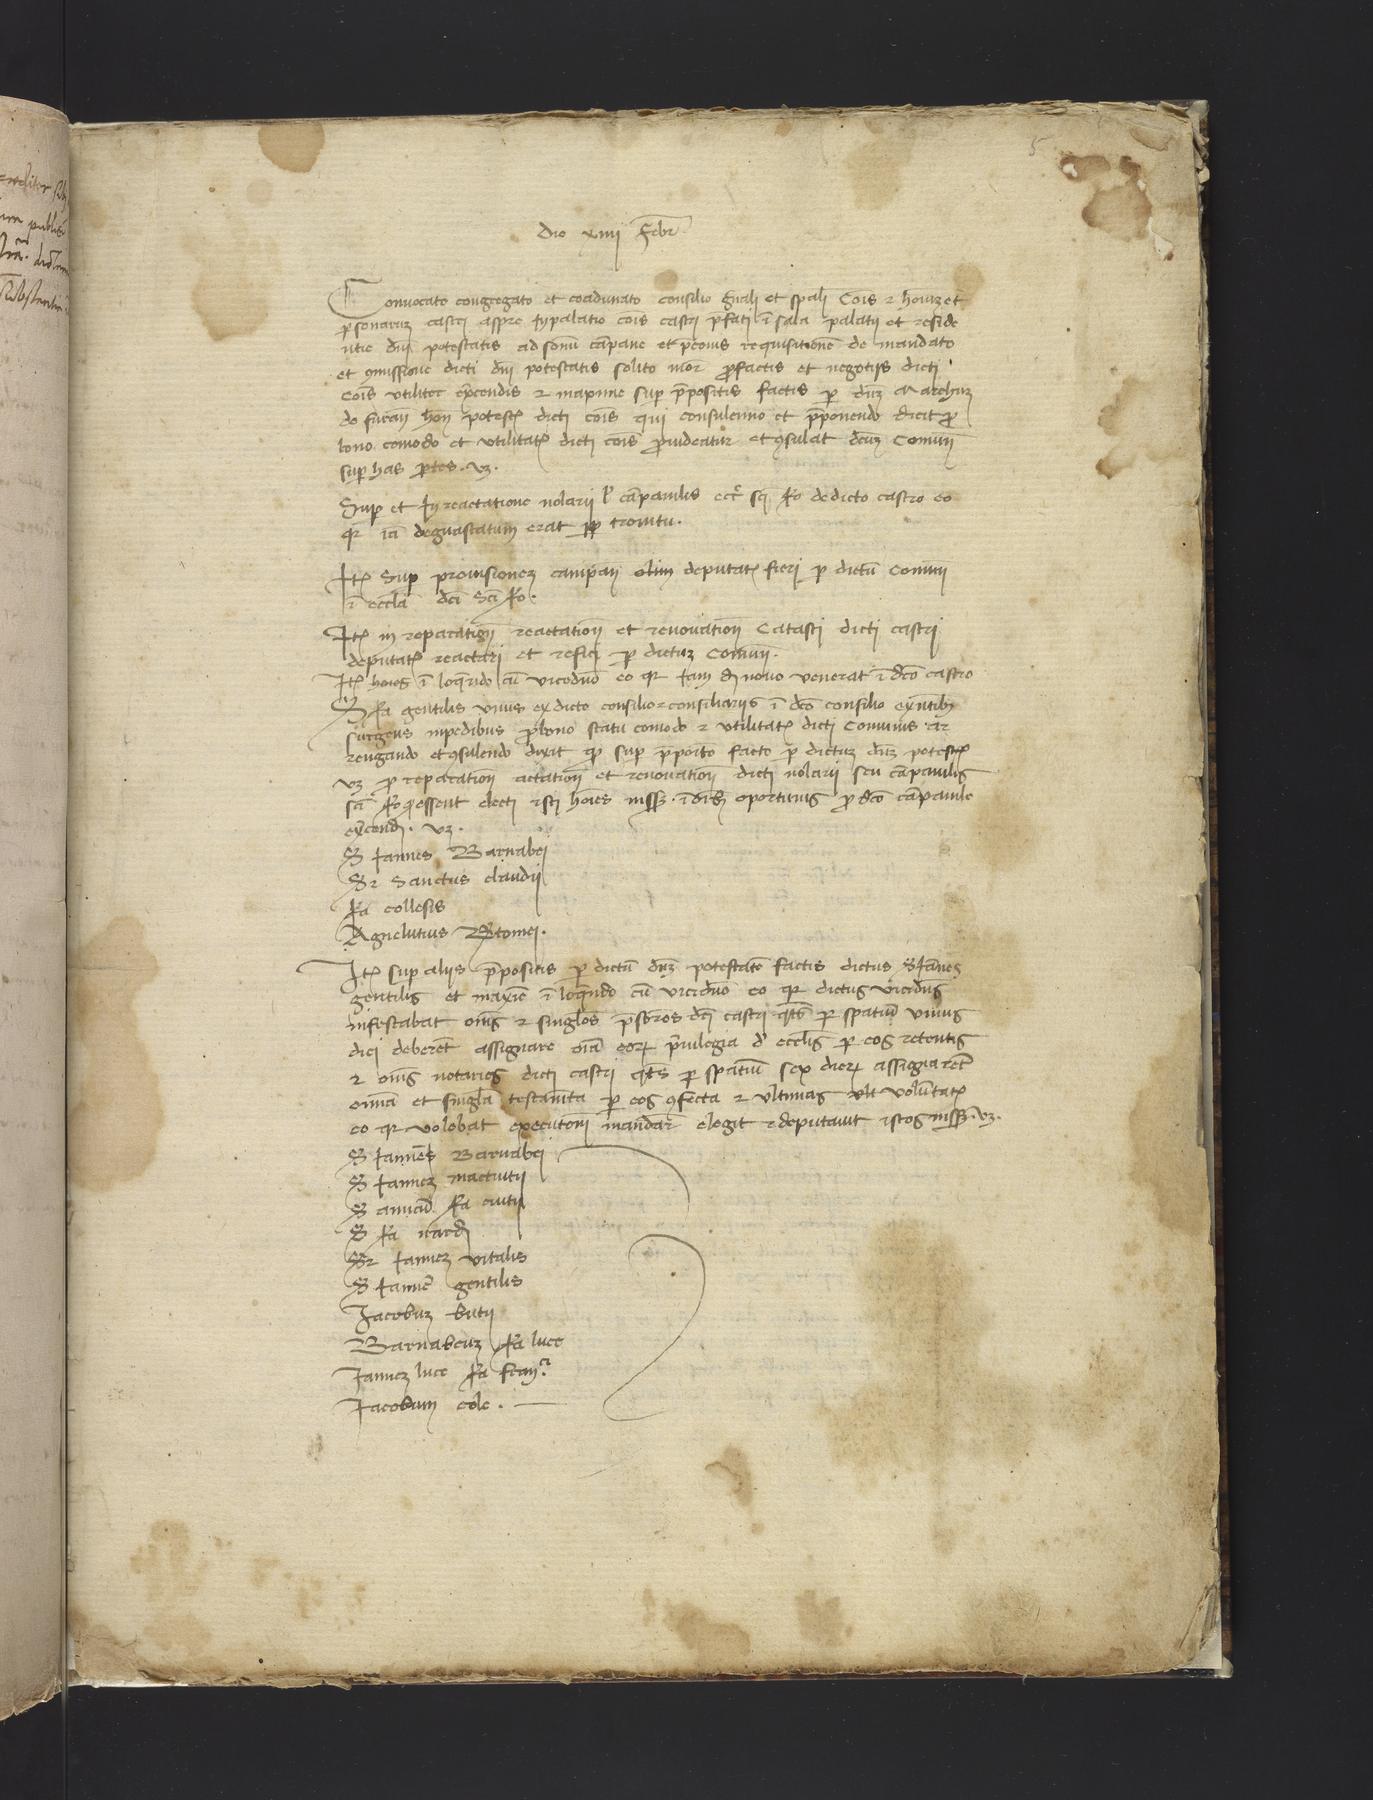 5
die xiiij Febr
Convocato congregato et coadunato consilio gnali et spali Cois et hoium et
personarum castri aspre in palatio cois castri pfati i sala palatii et reside
ntie dni potestatis ad sonu campane et pconis requisitione de mandato
et comissione dicti dni potestatis solito mor pro factis et negotiis dicti
Cois utiliter excendis et maxime sup ppositis factis p dnm Marchum
de hon potest dicti cois qui consulermo et pponendo dicit pro
bono comodo et utilitate dicti cois provideatur et consulat dcum Comun
sup has partes vz
Sup et in reactatione nolarii l campanilis eccl sci fo de dicto castro eo
qr ia deguastatum erat pp tronitu
Ite sup provisionem campan olim deputat fieri p dictu Comun
i eccla dci Sci fo
Ite in reparation reactation et renovation Catasti dicti castri
deputat reactari et refici p dictum Comun
Ite hoies i loqendo cu viceduo eo qr iam de novo venerat i dco castro
S fa gentilis unus ex dicto consilio et consiliariis i dco consilio exntibus
surgens in pedibus pro bono statu comodo et utilitate dicti Comunis ar
rengando et consulendo dixit qd sup pposito facto p dictum dnm potestate
vz pro reparation actation et renovation dicti nolarii seu campanilis
sci fo qd essent electi isti hoies infri i oibus oportunis pro dco campanile
excend vz
S Iannes Barnabei
Sr Sanctus claudii
fa collesis
Agnelutius Btomei
Ite sup aliis ppositis p dictu dnm potestate factis dictus S Iannes
gentilis et maxie i loqendo cu viceduo eo qr dictus viceduus
infestabat ones et singlos psbros dci castri qts p spatiu unius
diei deberet assignare oia eorum privilegia de ecclis p eos retentis
et ones notarios dicti castri qts p spatiu sex dierum assignaret
omia et singla testamta p eos confecta et ultimas ult voluntate
eo qr volebat executioni mandar elegit et deputavit istos infri vz
S Iannes Barnabei
S Iannem mactutii
S fa ciutii
S fa nardi
Sr Iannem vitalis
S Ianne gentilis
Jacobum butii
Barnabeum fa luce
Iannem luce fa fran
Jacobum cole